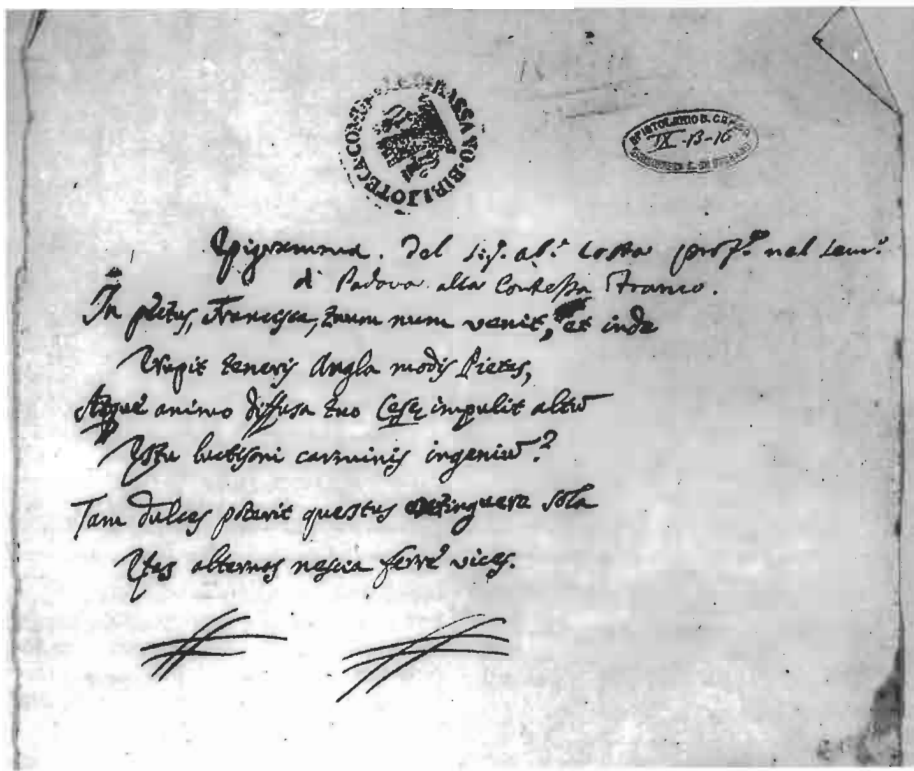 BIBLIOTECA COMUNALE DI BASSANO
EPISTOLARIO B. GAMBA
IX-13-16
Epigramma. Del sig. ab.e Costa prof.e nel sem.o
di Padova alla Contessa Franco.
In pectus, Francesca, tuum num venit, et inde
Erupit teneris Angla modis Pietas,
Atque animo diffusa tuo impulit altū
Æstu luctisoni carminis ingeniū?
Tam dulces poterit questus extinguere sola
Ætas alternas nescia ferre vices.